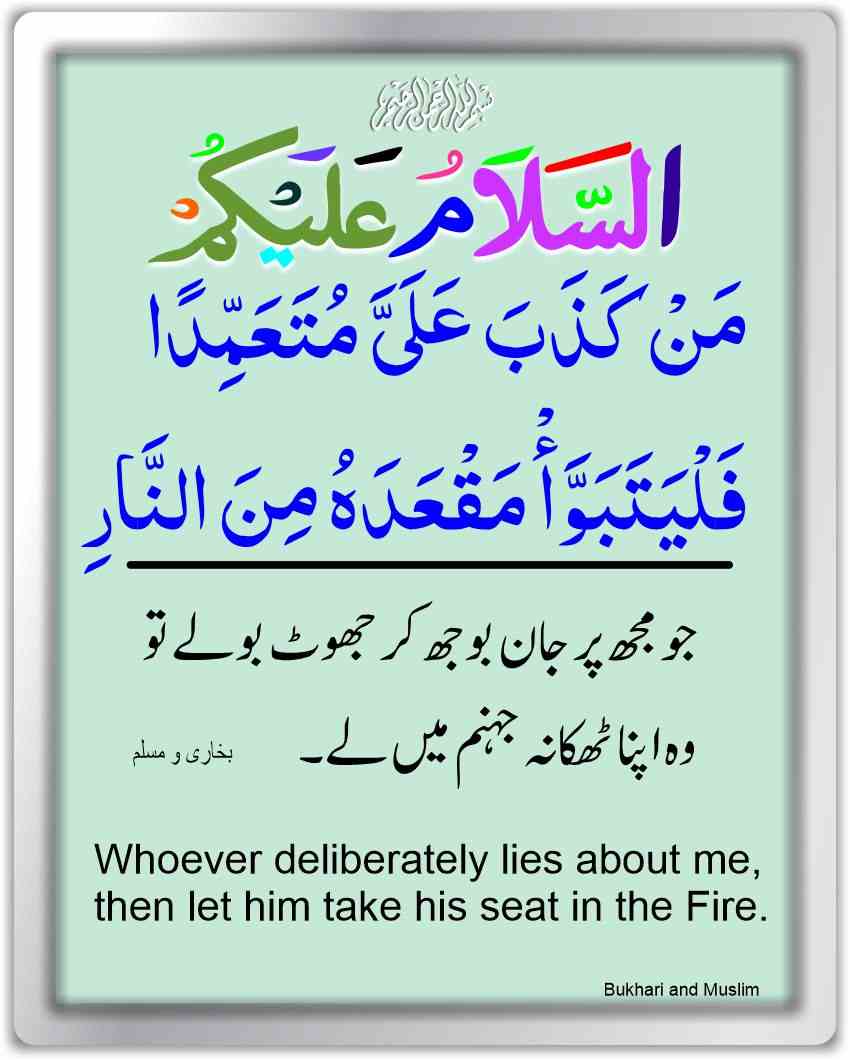 بسم الله الرحمن الرحيم
السَّلَامُ عَلَيْكُمْ
مَنْ كَذَبَ عَلَىَّ مُتَعَمِّدًا
فَلْيَتَبَوَّأْ مَقْعَدَهُ مِنَ النَّارِ
جو مجھ پر جان بوجھ کر جھوٹ بولے تو
وہ اپنا ٹھکانہ جہنم میں لے۔
بخاری و مسلم
Whoever deliberately lies about me,
then let him take his seat in the Fire.
Bukhari and Muslim